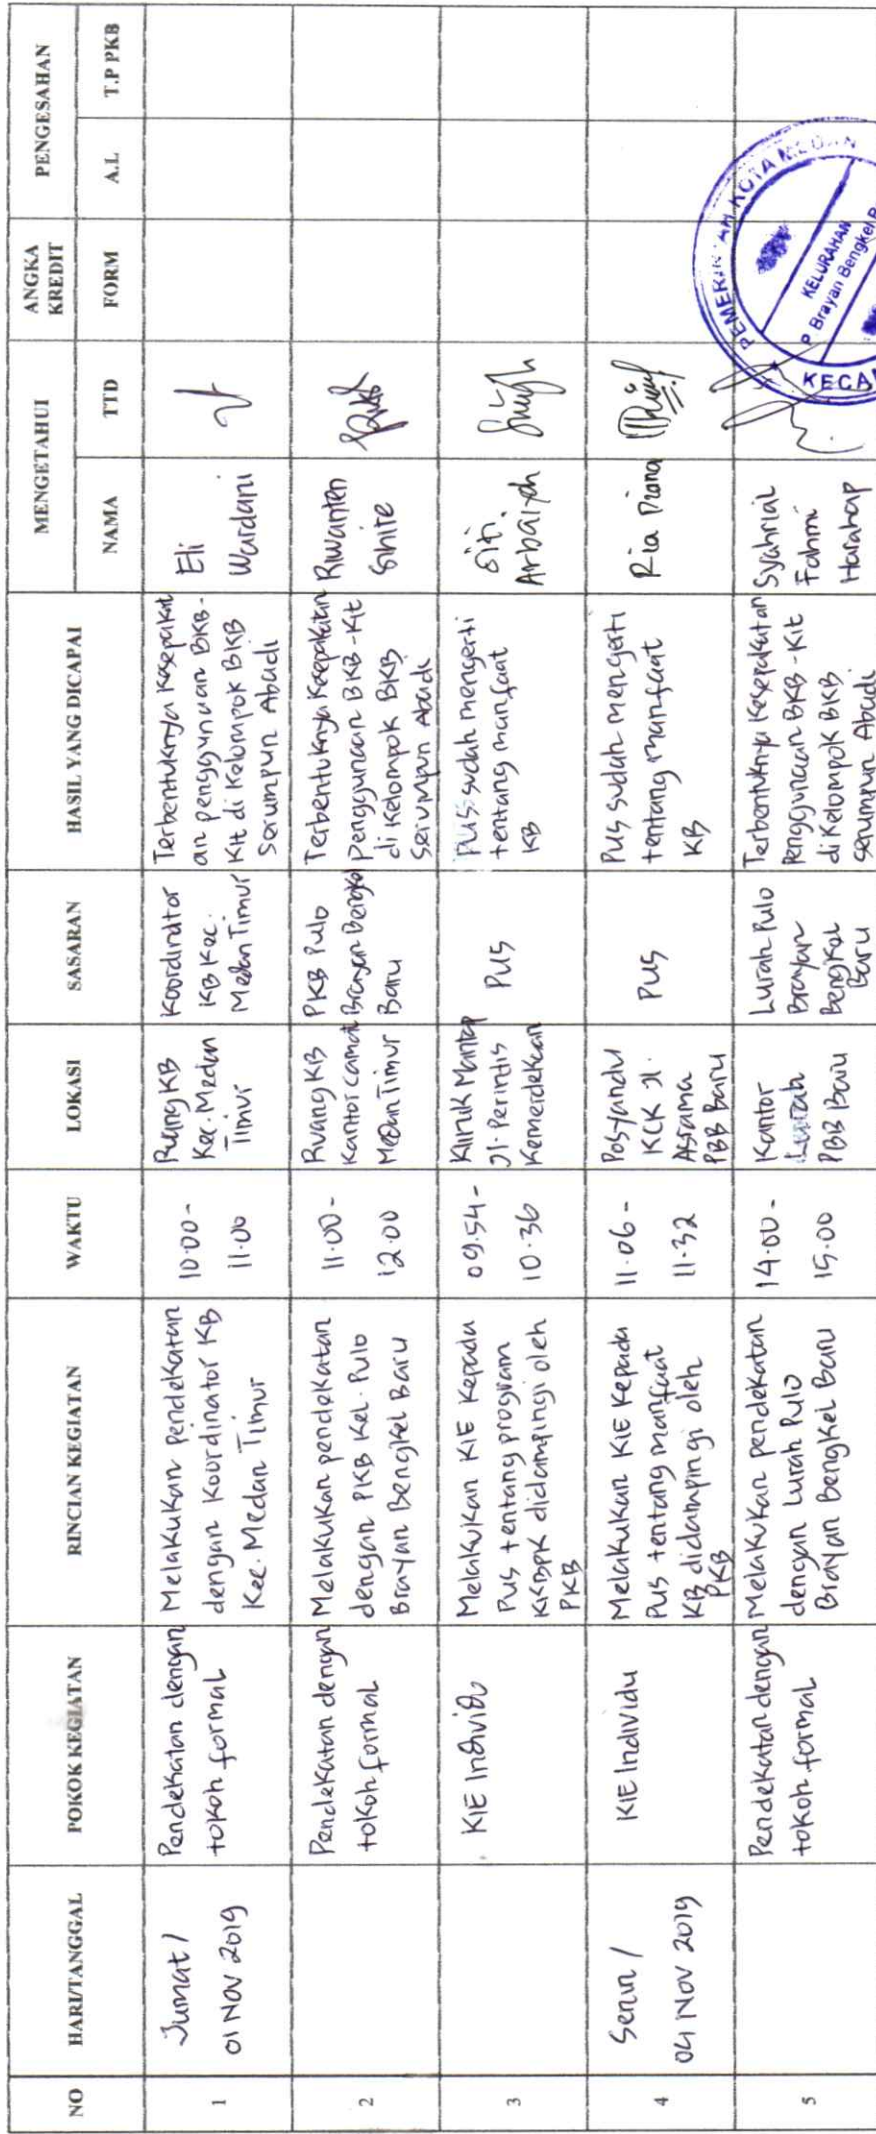 NO
HARI/TANGGAL
POKOK KEGIATAN
RINCIAN KEGIATAN
WAKTU
LOKASI
SASARAN
HASIL YANG DICAPAI
MENGETAHUI
NAMA
TTD
ANGKA
KREDIT
FORM
PENGESAHAN
A.L
T.P PKB
1
Jumat /
01 Nov 2019
Pendekatan dengan
tokoh formal
Melakukan pendekatan
dengan Koordinator KB
Kec. Medan Timur
10.00 -
11.00
Ruang KB
Kec. Medan
Timur
Koordinator
KB Kec.
Medan Timur
Terbentuknya Kesepakat
an penggunaan BKB-
Kit di Kelompok BKB
Serumpun Abadi
Eli
Wardani
2
Pendekatan dengan
tokoh formal
Melakukan pendekatan
dengan PKB Kel. Pulo
Brayan Bengkel Baru
11.00 -
12.00
Ruang KB
Kantor Camat
Medan Timur
PKB Pulo
Brayan Bengkel
Baru
Terbentuknya Kesepakatan
penggunaan BKB-Kit
di Kelompok BKB
Serumpun Abadi
Riwanten
3
KIE Individu
Melakukan KIE Kepada
Pus tentang program
KKBPK didampingi oleh
PKB
09.54 -
10.36
Klinik Mantap
Jl. Perintis
Kemerdekaan
PUS
PUS sudah mengerti
tentang manfaat
KB
Siti
Arbaiyah
4
Senin /
04 Nov 2019
KIE Individu
Melakukan KIE Kepada
Pus tentang manfaat
KB didampingi oleh
PKB
11.06 -
11.32
Posyandu
KCK Jl.
Asrama
PBB Baru
PUS
Pus sudah mengerti
tentang manfaat
KB
Ria Diana
5
Pendekatan dengan
tokoh formal
Melakukan pendekatan
dengan Lurah Pulo
Brayan Bengkel Baru
14.00 -
15.00
Kantor
Lurah
PBB Baru
Lurah Pulo
Brayan
Bengkel
Baru
Terbentuknya Kesepakatan
Penggunaan BKB-Kit
di Kelompok BKB
Serumpun Abadi
Syahrial
Fahmi
Harahap
KOTA MEDAN
KELURAHAN
P Brayan Bengkel B